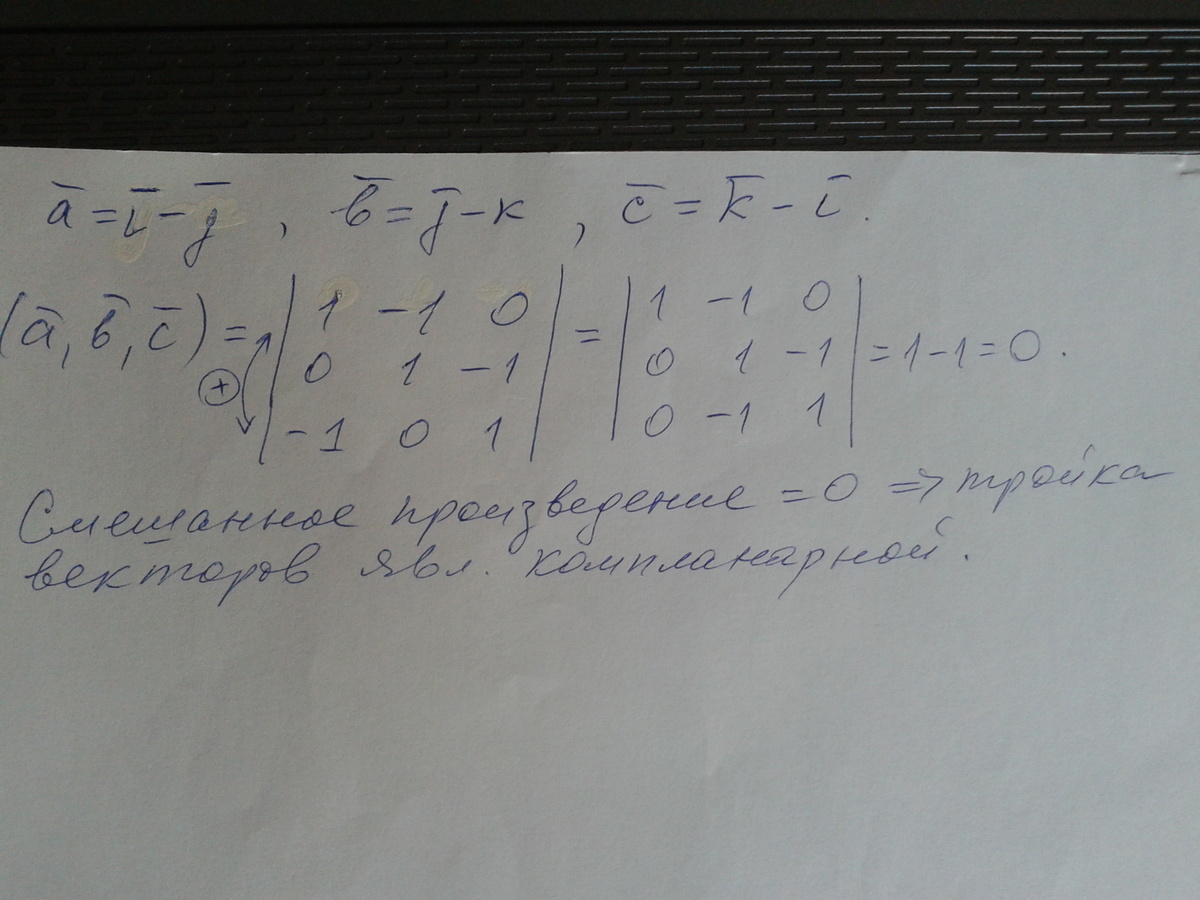 a̅ = i̅ - j̅ , в̅ = j̅ - к , c̅ = k̅ - i̅ .
(a̅, в̅, c̅) = ⊕ | 1 -1 0 | = | 1 -1 0 | = 1 - 1 = 0 .
| 0 1 -1 | | 0 1 -1 |
| -1 0 1 | | 0 -1 1 |
Смешанное произведение = 0 => тройка
векторов явл. компланарной.